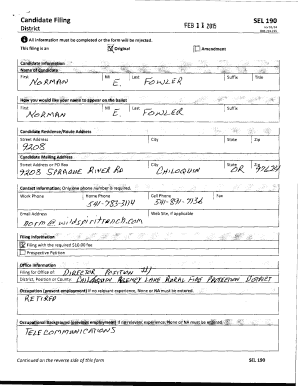 Candidate Filing
SEL 190
District
FEB 11 2015
All information must be completed or the form will be rejected.
This filing is an
Original
Amendment
Candidate Information
Name of Candidate
First MI Last Suffix Title
NORMAN E. FOWLER
How you would like your name to appear on the ballot
First MI Last Suffix
NORMAN E. FOWLER
Candidate Residence/Route Address
Street Address City State Zip
9208
Candidate Mailing Address
Street Address or PO Box City State Zip
9208 SPRAGUE RIVER RD CHILOQUIN OR 97624
Contact Information: Only one phone number is required.
Work Phone Home Phone Cell Phone Fax
541-783-3114 541-891-7136
Email Address Web Site, if applicable
norm@wildspiritranch.com
Filing Information
Filing with the required $10.00 fee
Prospective Petition
Office Information
Filing for Office of: DIRECTOR POSITION #1
District, Position or County: CHILOQUIN AGENCY LAKE RURAL FIRE PROTECTION DISTRICT
Occupation (present employment) If no relevant experience, None or NA must be entered.
RETIRED
Occupational Background (previous employment) If no relevant experience, None or NA must be entered.
TELECOMMUNICATIONS
Continued on the reverse side of this form
SEL 190